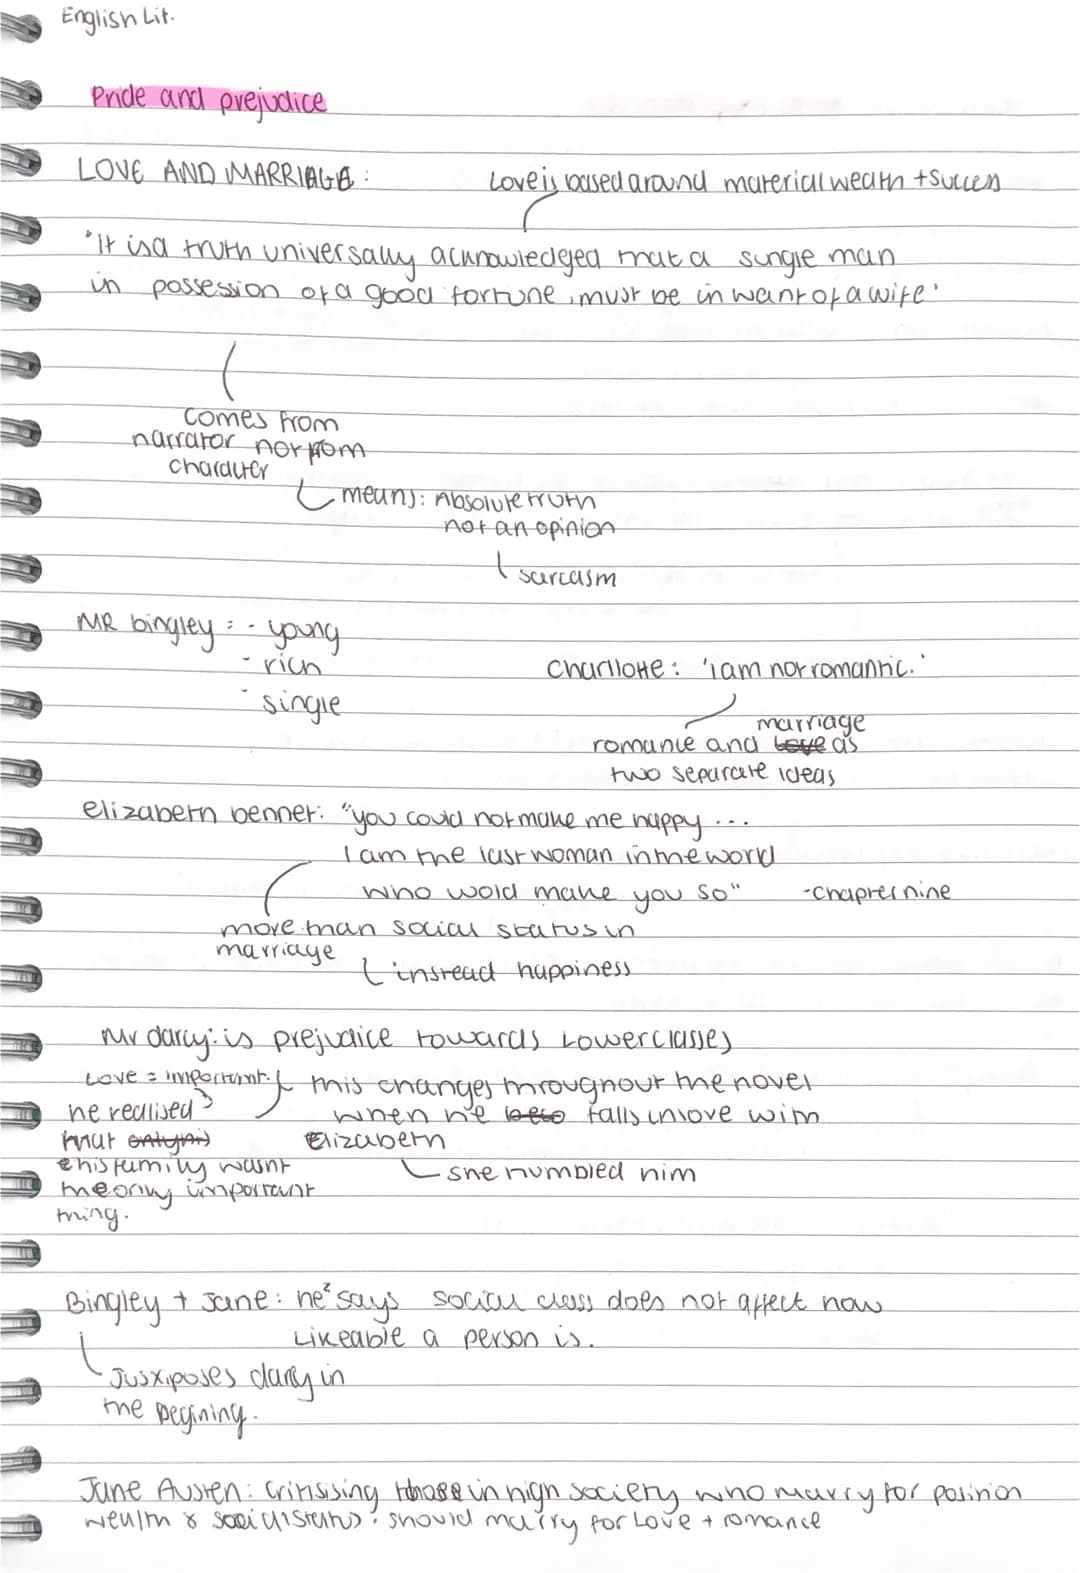 English Lit.
Pride and prejudice
LOVE AND MARRIAGE :
Love is based around material wealth + success
"It is a truth universally acknowledged that a single man
in possession of a good fortune, must be in want of a wife'
comes from
narrator not from
character
means: Absolute truth
not an opinion
sarcasm
MR bingley : - young
- rich
- single
Charllotte : 'i am not romantic.'
marriage
romance and love as
two separate ideas
elizabeth bennet: "you could not make me happy ...
I am the last woman in the world
who wold make you so" -chapter nine
more than social status in
marriage
instead happiness
Mr darcy: is prejudice towards Lower classes
Love = important.
this changes throughout the novel
he realised
when he falls in love with
that
Elizabeth
his family wasnt
she humbled him
the only important
thing.
Bingley + Jane: he says social class does not affect how
Likeable a person is.
Jusxiposes darcy in
the begining.
Jane Austen: Critisising those in high society who marry for position
wealth & social status : should marry for Love + romance